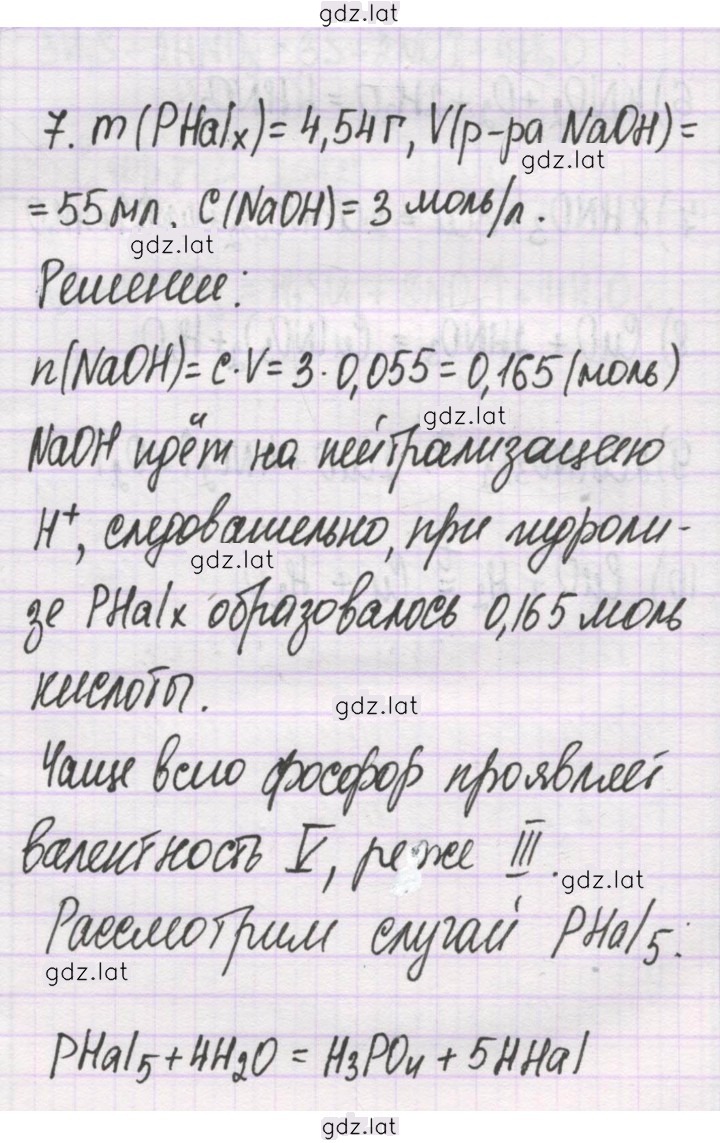 gdz.lat
7. m(PHalx) = 4,54 г, V(р-ра NaOH) =
gdz.lat
= 55 мл. C(NaOH) = 3 моль/л.
gdz.lat
Решение:
n(NaOH) = c·V = 3·0,055 = 0,165 (моль)
gdz.lat
NaOH идёт на нейтрализацию
H⁺, следовательно, при гидроли-
gdz.lat
зе PHalx образовалось 0,165 моль
кислоты.
gdz.lat
Чаще всего фосфор проявляет
валентность V, реже III.
gdz.lat
Рассмотрим случай PHal₅:
gdz.lat
PHal₅ + 4H₂O = H₃PO₄ + 5HHal
gdz.lat